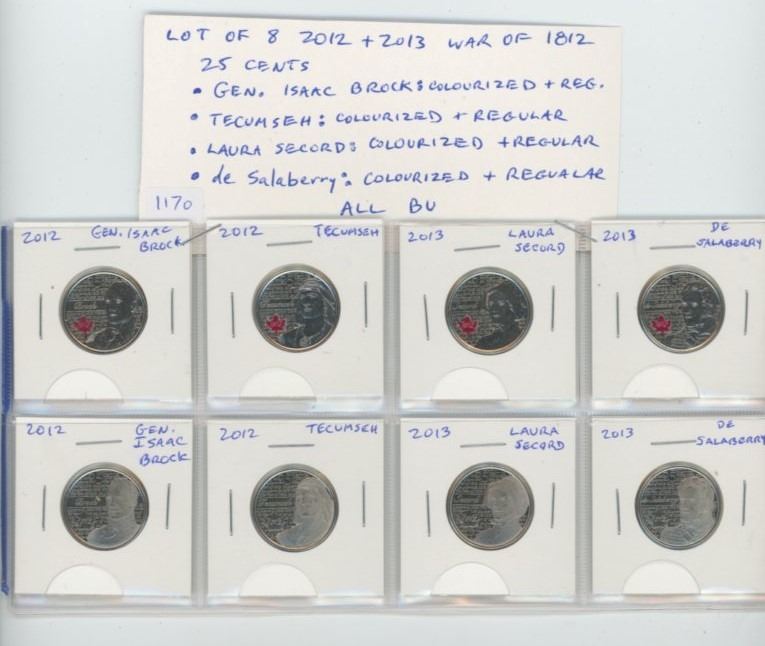 LOT OF 8 2012 + 2013 WAR OF 1812
25 CENTS
• GEN. ISAAC BROCK: COLOURIZED + REG.
• TECUMSEH: COLOURIZED + REGULAR
• LAURA SECORD: COLOURIZED + REGULAR
• de Salaberry: COLOURIZED + REGUALAR
ALL BU
1170
2012 GEN. ISAAC
BROCK
2012 TECUMSEH
2013 LAURA
SECORD
2013 DE
SALABERRY
2012 GEN.
ISAAC
BROCK
2012 TECUMSEH
2013 LAURA
SECORD
2013 DE
SALABERRY